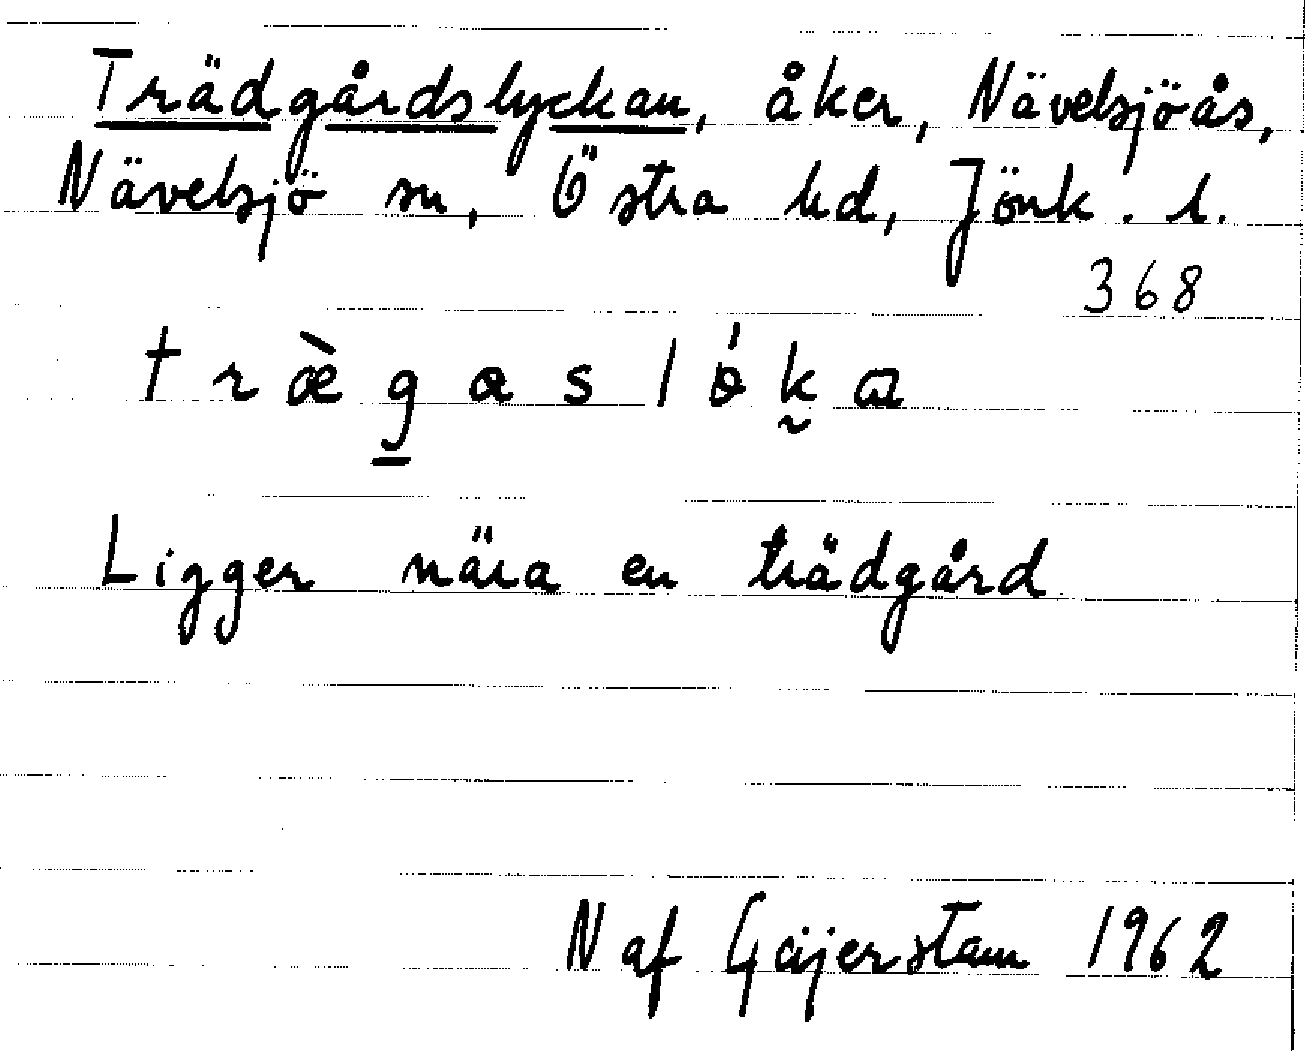 Trädgårdslyckan, åker, Nävelsjöås,
Nävelsjö sn, Östra hd, Jönk. l.
368
træ̀gaslǿk̰a
Ligger nära en trädgård
N af Geijerstam 1962